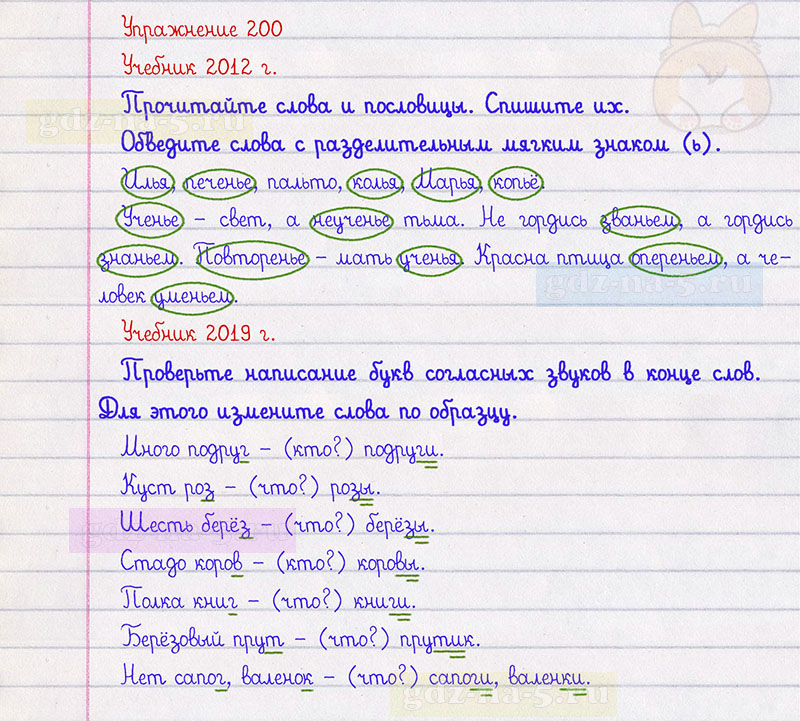 Упражнение 200
Учебник 2012 г.
Прочитайте слова и пословицы. Спишите их.
gdz-na-5.ru
Обведите слова с разделительным мягким знаком (ь).
Илья, печенье, пальто, колья, Марья, копьё.
Ученье – свет, а неученье тьма. Не гордись званьем, а гордись
знаньем. Повторенье – мать ученья. Красна птица опереньем, а че-
gdz-na-5.ru
ловек уменьем.
Учебник 2019 г.
Проверьте написание букв согласных звуков в конце слов.
Для этого измените слова по образцу.
Много подруг – (кто?) подруги.
Куст роз – (что?) розы.
Шесть берёз – (что?) берёзы.
gdz-na-5.ru
Стадо коров – (кто?) коровы.
Полка книг – (что?) книги.
Берёзовый прут – (что?) прутик.
Нет сапог, валенок – (что?) сапоги, валенки.
gdz-na-5.ru